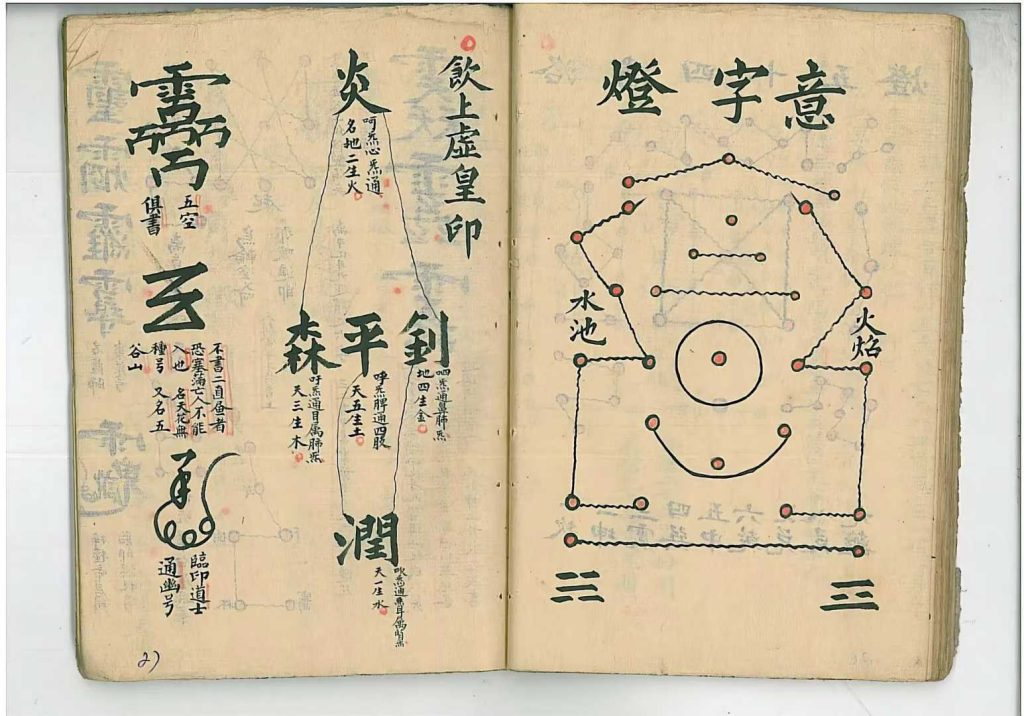 意字燈
火焰
水池
飲上虛皇印
炎
呵炁心炁通
名地二生火
釗
呬炁通鼻肺炁
地四生金
平
呼炁脾通四股
天五生土
森
吁炁通目属肺炁
天三生木
潤
天一生水
五空
俱書
不書二直昼者
恐塞滿亡人不能
入也 名天花無
種号 又名五
谷山
臨印道士
通幽号